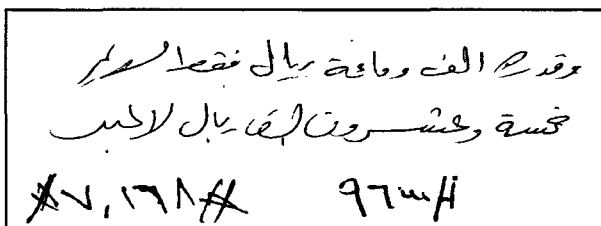 وقدره الف ومائة ريال فقط
خمسة وعشرون الف ريال لاغير
#٧,١٦٨# ٩٦٣٣#